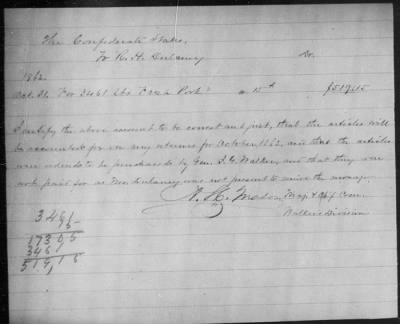 The Confederate States,
To R. H. Dulaney Dr.
1862
Oct. 31 For 3461 lbs Fresh Pork a 15 cts $519.15
I certify the above account to be correct and just, that the articles will
be accounted for on my returns for October 1862, and that the articles
were ordered to be purchased by Gen. J. G. Walker, and that they were
not paid for as Mr Dulaney was not present to receive the money.
Maj & Com
Walker's Division
3461
15
17305
3461
519,15